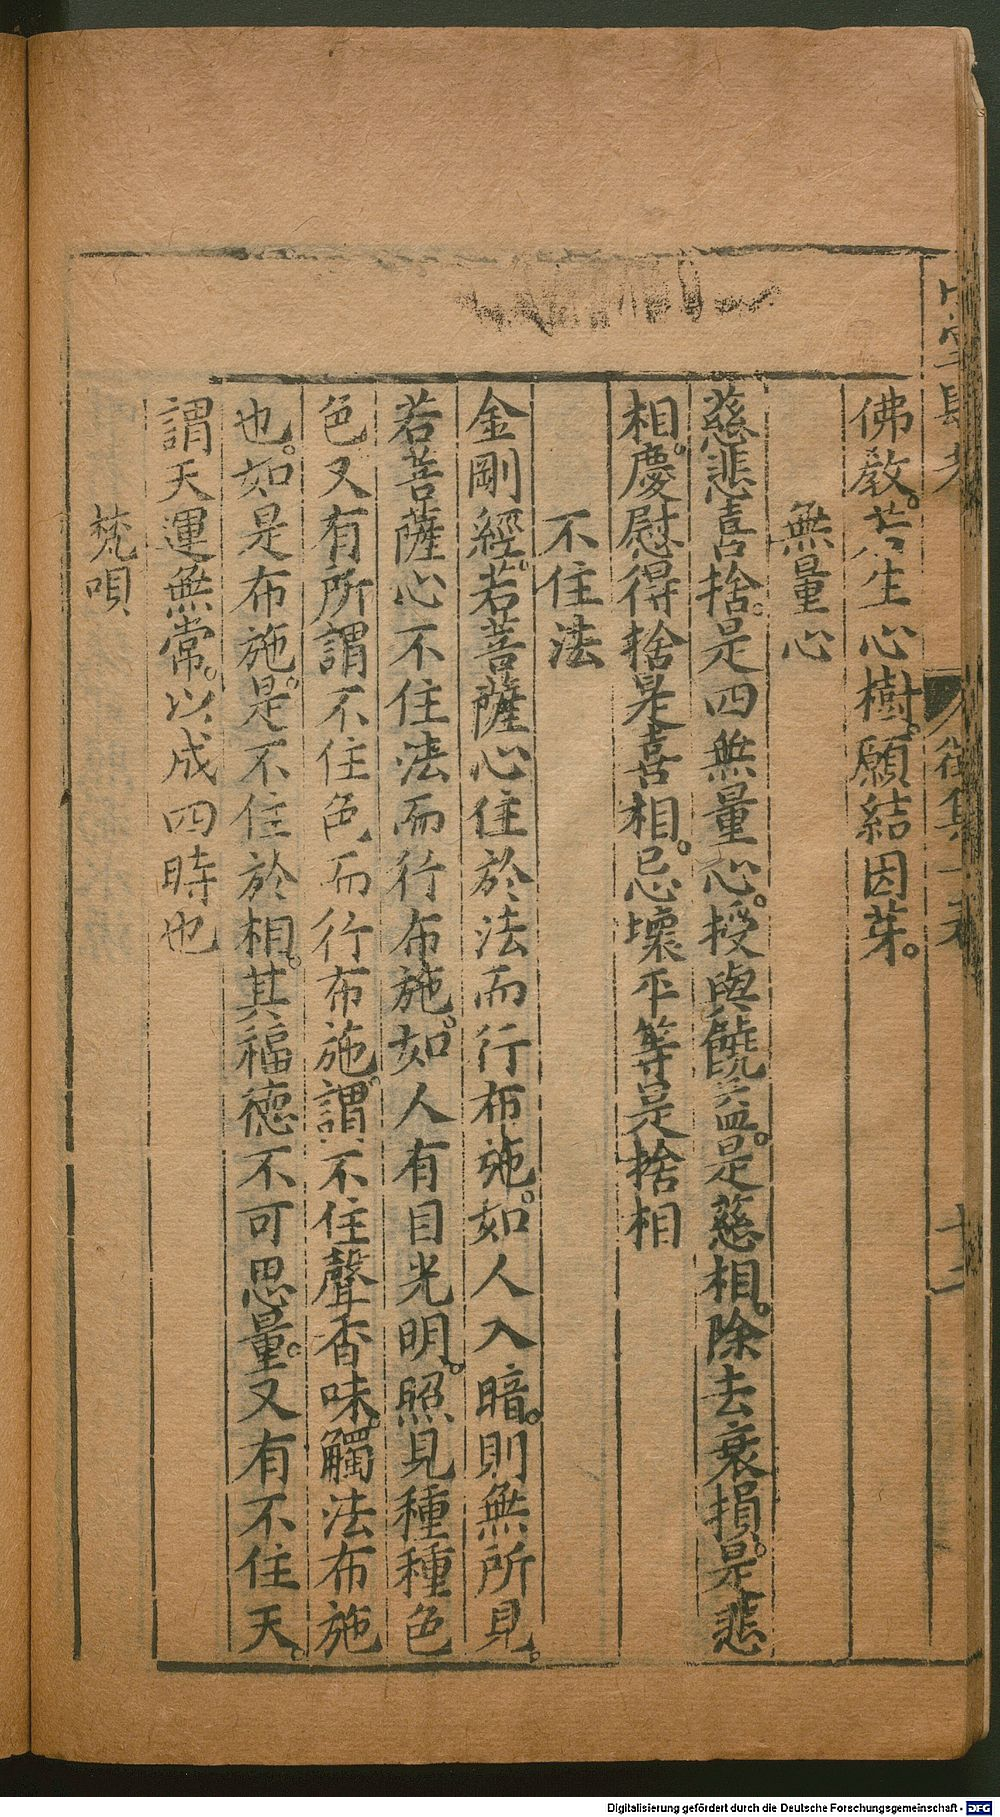 佛教。若生心樹。願結因芽。
無量心
慈悲喜捨。是四無量心。授與饒益。是慈相。除去衰損。是悲
相。慶慰得捨是喜相。忌壞平等是捨相
不住法
金剛經。若菩薩心住於法而行布施。如人入暗。則無所見。
若菩薩心不住法而行布施。如人有目光明。照見種種色
色又有所謂不住色而行布施。謂不住聲香味。觸法布施
也。如是布施。是不住於相。其福德不可思量。又有不住天。
謂天運無常。以成四時也
梵唄
Digitalisierung gefördert durch die Deutsche Forschungsgemeinschaft - DFG